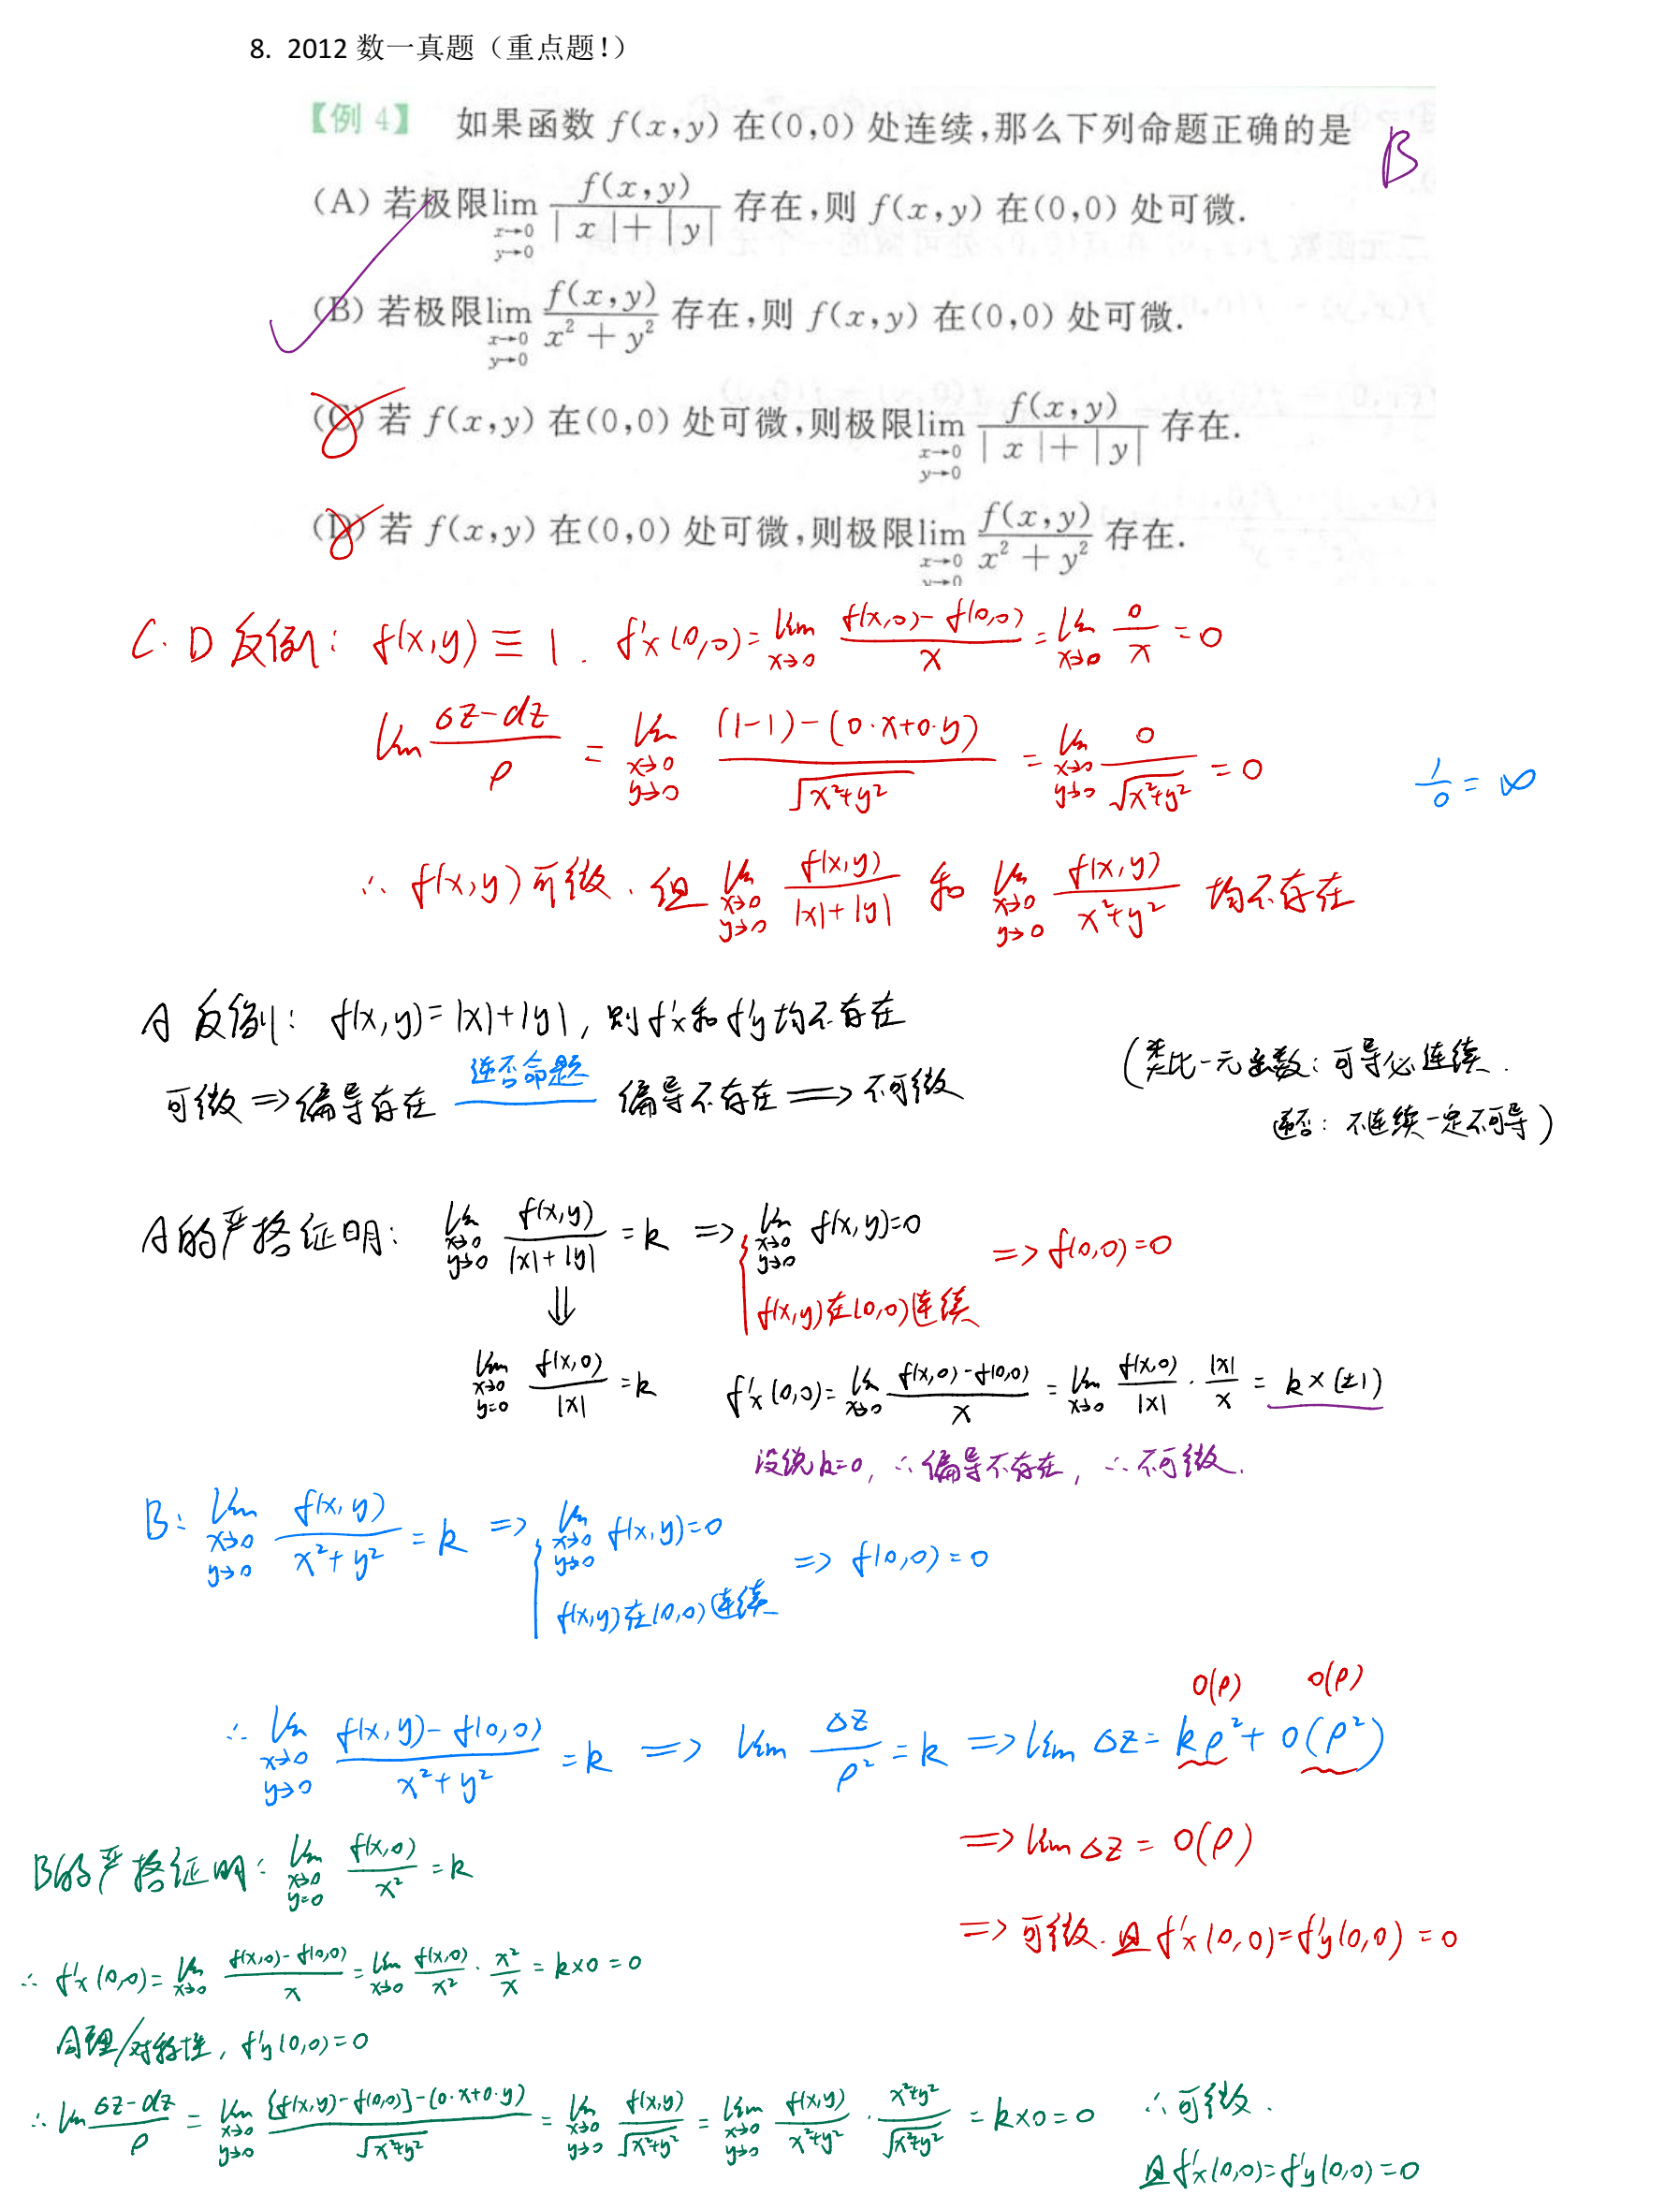 8. 2012 数一真题（重点题！）
【例 4】 如果函数 f(x,y) 在(0,0) 处连续,那么下列命题正确的是 B
(A) 若极限 lim_{x→0, y→0} f(x,y)/(|x|+|y|) 存在,则 f(x,y) 在(0,0) 处可微.
(B) 若极限 lim_{x→0, y→0} f(x,y)/(x²+y²) 存在,则 f(x,y) 在(0,0) 处可微.
(C) 若 f(x,y) 在(0,0) 处可微,则极限 lim_{x→0, y→0} f(x,y)/(|x|+|y|) 存在.
(D) 若 f(x,y) 在(0,0) 处可微,则极限 lim_{x→0, y→0} f(x,y)/(x²+y²) 存在.
C. D 反例: f(x,y) ≡ 1. f'x(0,0) = lim_{x→0} (f(x,0)-f(0,0))/x = lim_{x→0} 0/x = 0
lim (Δz-dz)/ρ = lim_{x→0, y→0} ((1-1)-(0·x+0·y))/√(x²+y²) = lim_{x→0, y→0} 0/√(x²+y²) = 0
1/0 = ∞
∴ f(x,y) 可微. 但 lim_{x→0, y→0} f(x,y)/(|x|+|y|) 和 lim_{x→0, y→0} f(x,y)/(x²+y²) 均不存在
A 反例: f(x,y)=|x|+|y|, 则 f'x 和 f'y 均不存在
可微 => 偏导存在 逆否命题 偏导不存在 => 不可微
(类比一元函数: 可导必连续.
逆否: 不连续一定不可导)
A的严格证明: lim_{x→0, y→0} f(x,y)/(|x|+|y|) = k => { lim_{x→0, y→0} f(x,y)=0
f(x,y)在(0,0)连续
=> f(0,0)=0
⇓
lim_{x→0, y=0} f(x,0)/|x| = k
f'x(0,0) = lim_{x→0} (f(x,0)-f(0,0))/x = lim_{x→0} f(x,0)/|x| · |x|/x = k×(±1)
没说k=0, ∴偏导不存在, ∴不可微.
B: lim_{x→0, y→0} f(x,y)/(x²+y²) = k => { lim_{x→0, y→0} f(x,y)=0
f(x,y)在(0,0)连续
=> f(0,0)=0
o(ρ) o(ρ)
∴ lim_{x→0, y→0} (f(x,y)-f(0,0))/(x²+y²) = k => lim Δz/ρ² = k => lim Δz = kρ²+o(ρ²)
=> lim Δz = o(ρ)
=> 可微. 且 f'x(0,0)=f'y(0,0)=0
B的严格证明: lim_{x→0, y=0} f(x,0)/x² = k
∴ f'x(0,0) = lim_{x→0} (f(x,0)-f(0,0))/x = lim_{x→0} f(x,0)/x² · x²/x = k×0 = 0
同理/对称性, f'y(0,0)=0
∴ lim (Δz-dz)/ρ = lim_{x→0, y→0} ([f(x,y)-f(0,0)]-(0·x+0·y))/√(x²+y²) = lim_{x→0, y→0} f(x,y)/√(x²+y²) = lim_{x→0, y→0} f(x,y)/(x²+y²) · (x²+y²)/√(x²+y²) = k×0 = 0 ∴可微.
且 f'x(0,0)=f'y(0,0)=0